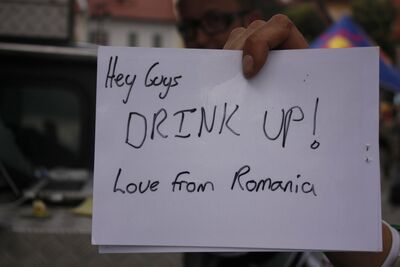 Hey Guys
DRINK UP!
Love from Romania